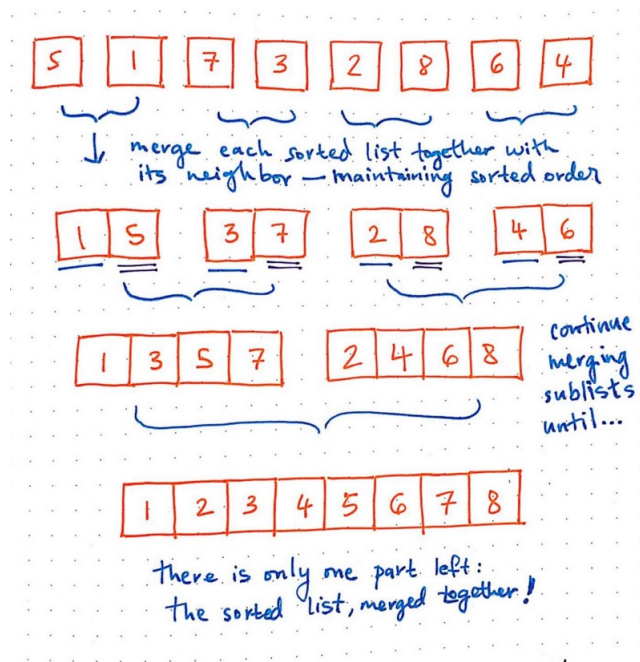 5 1 7 3 2 8 6 4
merge each sorted list together with
its neighbor — maintaining sorted order
1 5 3 7 2 8 4 6
continue
merging
sublists
until...
1 3 5 7 2 4 6 8
1 2 3 4 5 6 7 8
there is only one part left:
the sorted list, merged together!